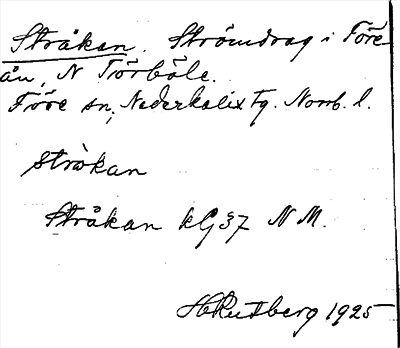 Stråkan. Strömdrag i Töre-
ån, N Törböle.
Töre sn, Nederkalix tg. Norrb. l.
stràkan
Stråkan kG 37 N M.
H Rutberg 1925